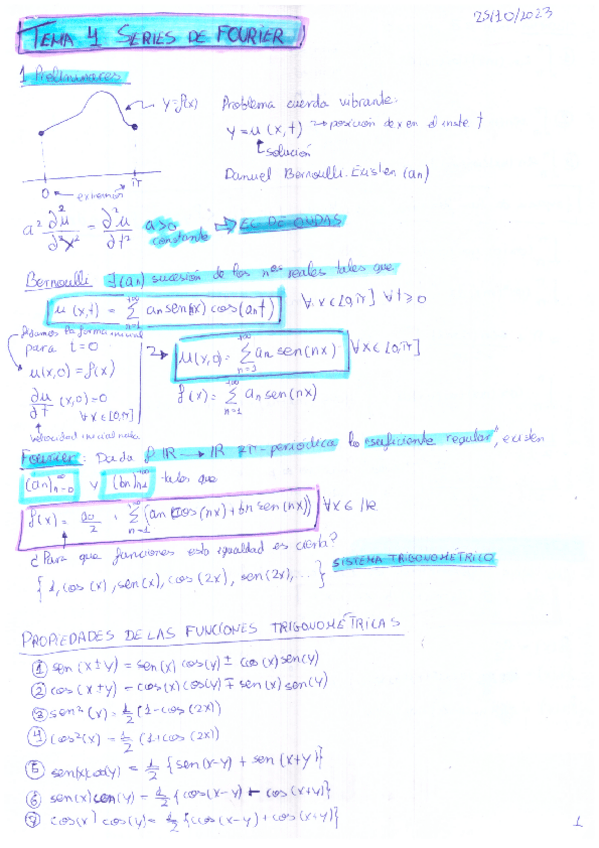 25/10/2023
TEMA 4 SERIES DE FOURIER
1 Preliminares
y=f(x)
Problema cuerda vibrante.
y = u(x,t) → posición de x en el inste. t
solución
Daniel Bernoulli. Existen (an)
0 ← extremos → π
a² ∂²u/∂x² = ∂²u/∂t² a>0 constante ⇒ EC DE ONDAS
Bernoulli ∃(an) sucesión de los nºs reales tales que
u(x,t) = Σ_{n=1}^{+∞} an sen(nx) cos(ant) ∀x∈[0,π] ∀t≥0
la forma inicial
para t=0
u(x,0) = f(x)
∂u/∂t (x,0)=0 ∀x∈[0,π]
velocidad inicial nula
u(x,0) = Σ_{n=1}^{+∞} an sen(nx) ∀x∈[0,π]
f(x) = Σ_{n=1}^{+∞} an sen(nx)
Fourier: Dada f: IR → IR 2π-periódica lo "suficiente regular", existen
(an)_{n=0}^{+∞} y (bn)_{n=1}^{+∞} tales que
f(x) = a0/2 + Σ_{n=1}^{+∞} (an cos(nx) + bn sen(nx)) ∀x∈IR
¿Para que funciones esta igualdad es cierta?
{1, cos(x), sen(x), cos(2x), sen(2x), ...} SISTEMA TRIGONOMÉTRICO
PROPIEDADES DE LAS FUNCIONES TRIGONOMÉTRICAS
① sen(x±y) = sen(x)cos(y) ± cos(x)sen(y)
② cos(x±y) = cos(x)cos(y) ∓ sen(x)sen(y)
③ sen²(x) = 1/2 (1-cos(2x))
④ cos²(x) = 1/2 (1+cos(2x))
⑤ sen(x)cos(y) = 1/2 {sen(x-y) + sen(x+y)}
⑥ sen(x)sen(y) = 1/2 {cos(x-y) - cos(x+y)}
⑦ cos(x)cos(y) = 1/2 {cos(x-y) + cos(x+y)}
1